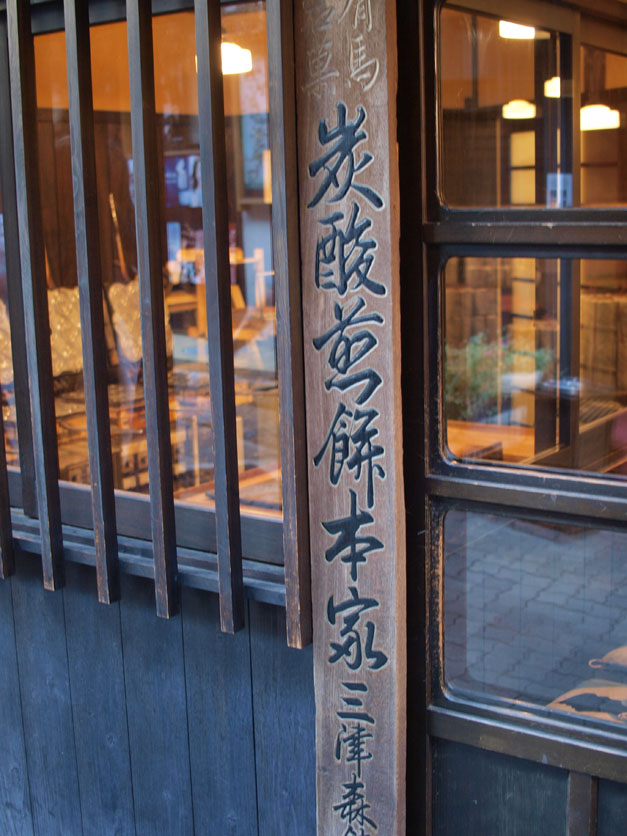 有馬
名菓
炭酸煎餅本家 三津森